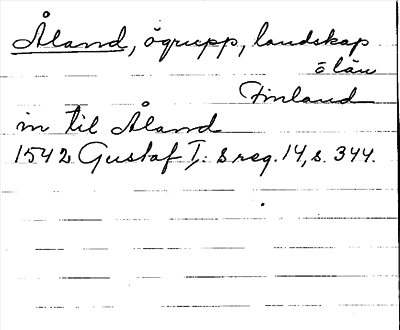 Åland, ögrupp, landskap
o län
Finland
in til Åland
1542 Gustaf I: s reg. 14, s. 344.